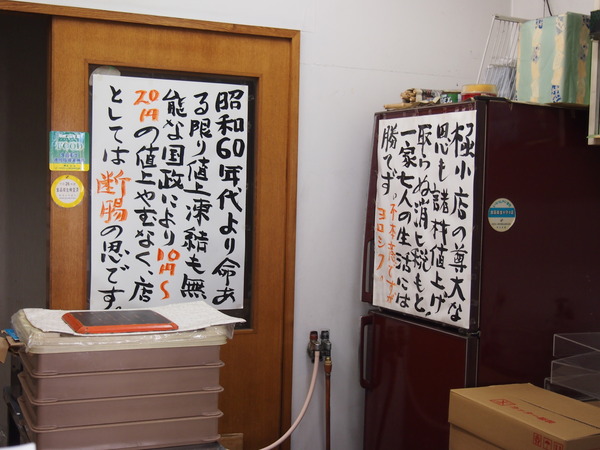 昭和60年代より命あ
る限り値上凍結も無
能な国政により10円〜
20円の値上やむなく、店
としては断腸の思です。
極小店の尊大な
思も諸材値上げ
取らぬ消ヒ税もと、
一家七人の生活には
勝てず。不本意ですが
ヨロシク。